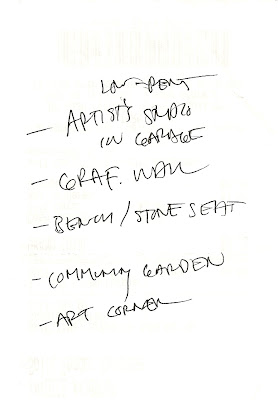 LOW-RENT
- ARTIST'S STUDIO
IN GARAGE
- GRAF. WALL
- BENCH/STONE SEAT
- COMMUNITY GARDEN
- ART CORNER